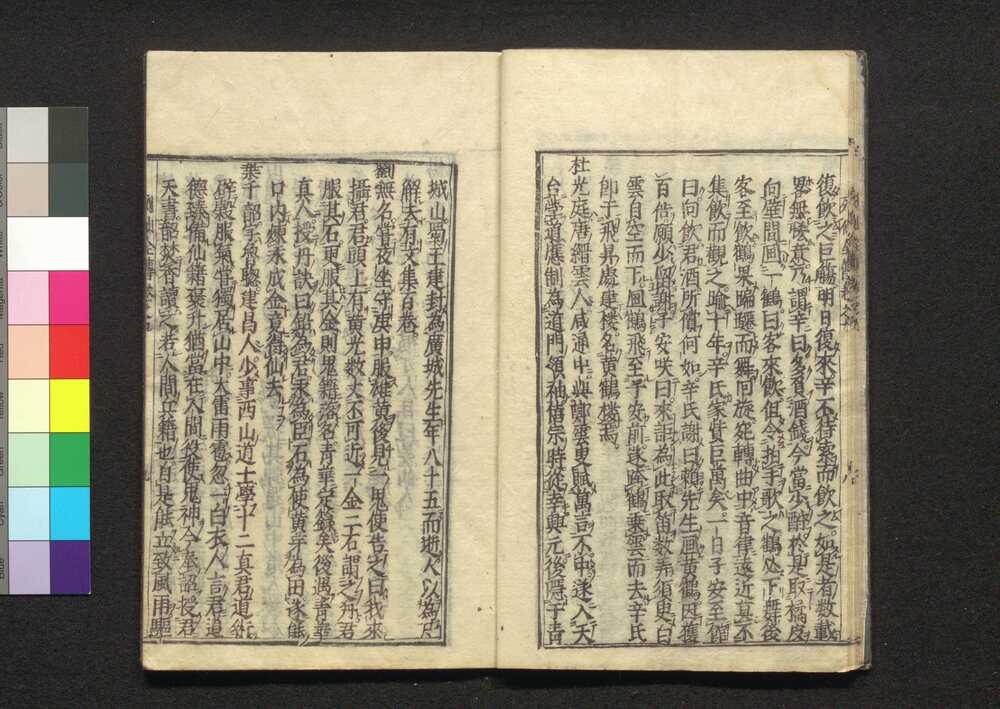 復飲之巨觴明日復來辛不待索而飲之如是者数載
畧無醻意乃謂辛曰多負酒錢今當少酬於是取橘皮
向壁間画一鶴曰客來飲但令拍手歌之鶴必下舞後
客至飲鶴果蹁躚而舞回旋宛轉曲中音律遠近莫不
集飲而觀之踰十年辛氏家貲巨萬矣一日子安至舘
曰向飲君酒所償何如辛氏謝曰賴先生画黄鶴因獲
百倍願少留謝子安咲曰來詎為此取笛数弄須臾白
雲自空而下画鶴飛至子安前遂跨鶴乗雲而去辛氏
即于飛昇處建樓名黄鶴樓焉
杜光庭唐縉雲人咸通中與鄭雲叟賦萬言不中遂入天
台學道應制為道門領袖僖宗時從幸興元後隱于青
城山蜀王建封為廣城先生年八十五而逝人以為尸
解夫有文集百巻
劉無名嘗夜坐守庚申服雄黄後見一鬼使告之曰我來
攝君君頭上有黄光数丈不可近一金二石謂之丹君
服其石更服其金則鬼籍落名青華定録矣後遇青華
真人授丹訣曰鉛為君汞為臣石為使黄芽為田遂能
口内煉汞成金竟得仙去
葉千韶字魯聰建昌人少事西山道士學十二真君道術
辟穀服氣嘗獨居山中大雷雨電忽一白衣人言君道
德臻備仙籍褒升猶當在人間役使鬼神今奉詔授君
天書部焚香讀之若人間兵籍也自是能立致風雨驅